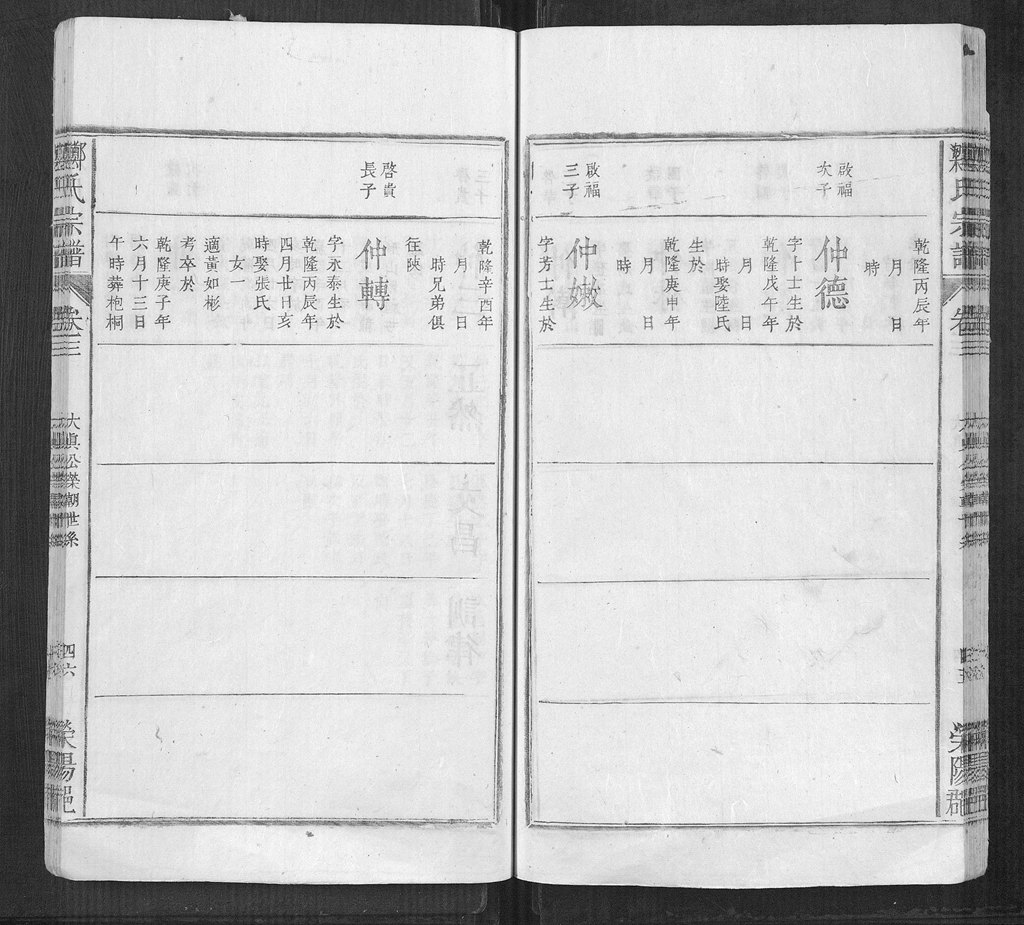 乾隆丙辰年
月　日
時
啟福
次子
仲德
字卜士生於
乾隆戊午年
月　日
時娶陸氏
生於
乾隆庚申年
月　日
時
啟福
三子
仲嫩
字芳士生於
乾隆辛酉年
月　日
時兄弟俱
徃陝
啓貴
長子
仲轉
字永泰生於
乾隆丙辰年
四月廿日亥
時娶張氏
女一
適黃如彬
考卒於
乾隆庚子年
六月十三日
午時葬枹桐
鄭氏宗譜
卷三
大眞公榮朝世系
四六
滎陽